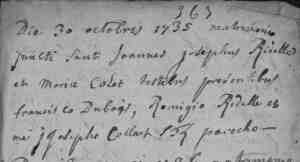 363
Die 30 octobris 1735 matrimonio
juncti sunt Joannes josephus Rivelle
et Maria Colet testibus presentibus
francisco Dubois, Remigio Rivelle et
me jqosepho Collart parocho —